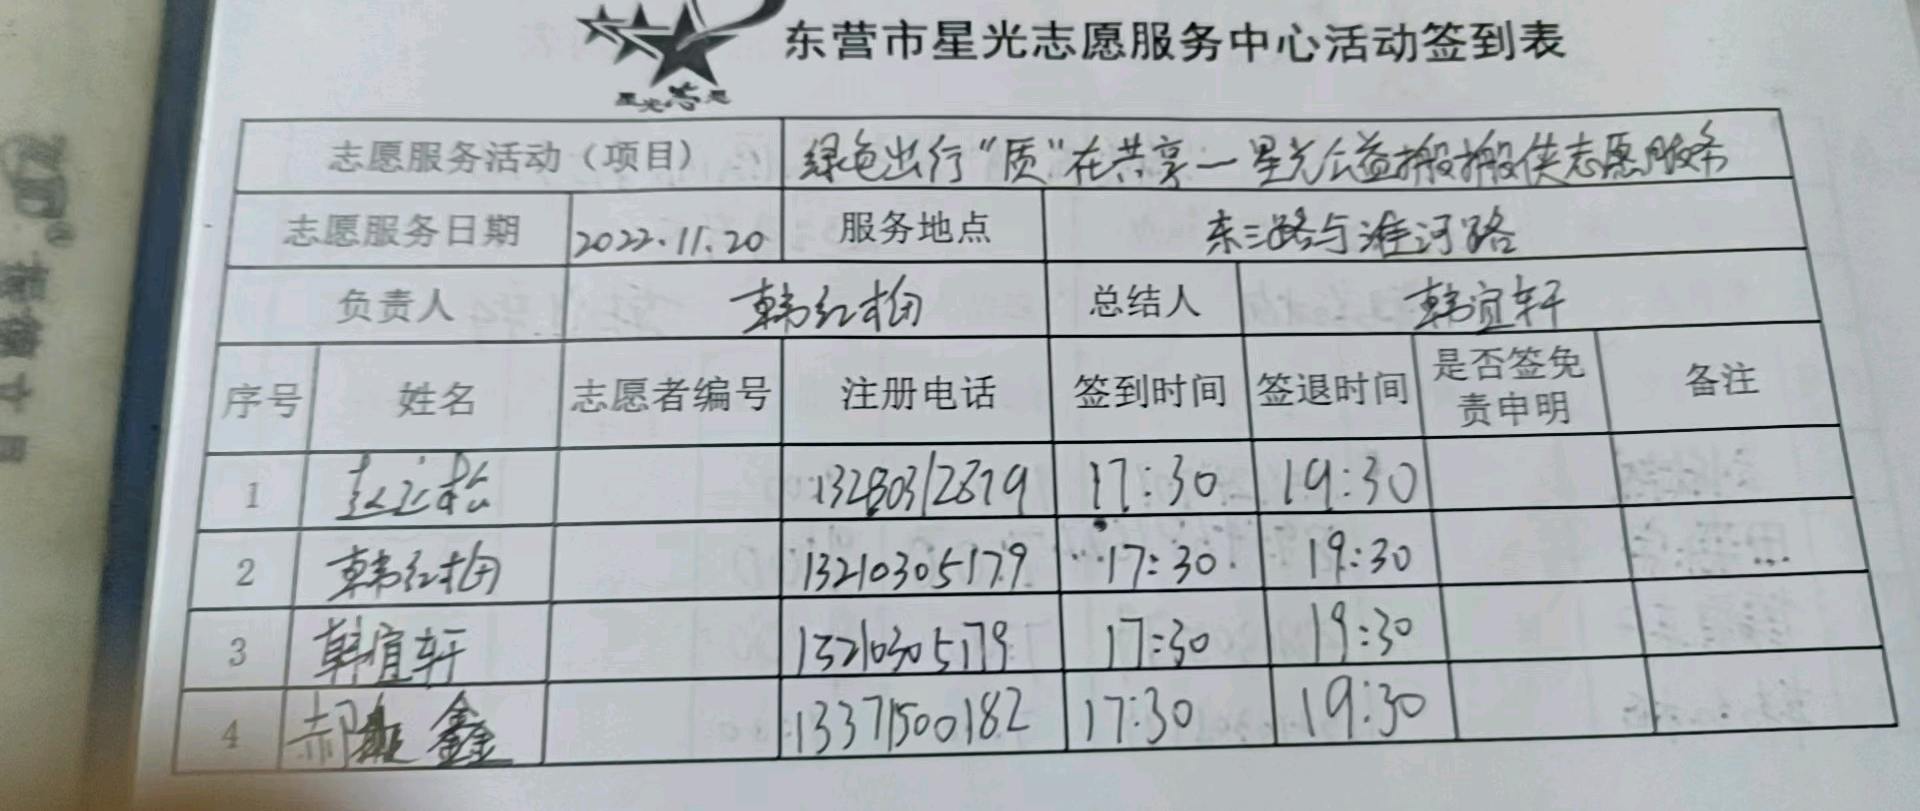 东营市星光志愿服务中心活动签到表
星光志愿
志愿服务活动（项目） 绿色出行“质”在共享一星光公益搬搬侠志愿服务
志愿服务日期 2022.11.20 服务地点 东三路与淮河路
负责人 韩红梅 总结人 韩宜轩
序号 姓名 志愿者编号 注册电话 签到时间 签退时间 是否签免责申明 备注
1 13280312879 17:30 19:30
2 韩红梅 13210305179 17:30 19:30
3 韩宜轩 13210305179 17:30 19:30
4 郝 鑫 13371500182 17:30 19:30